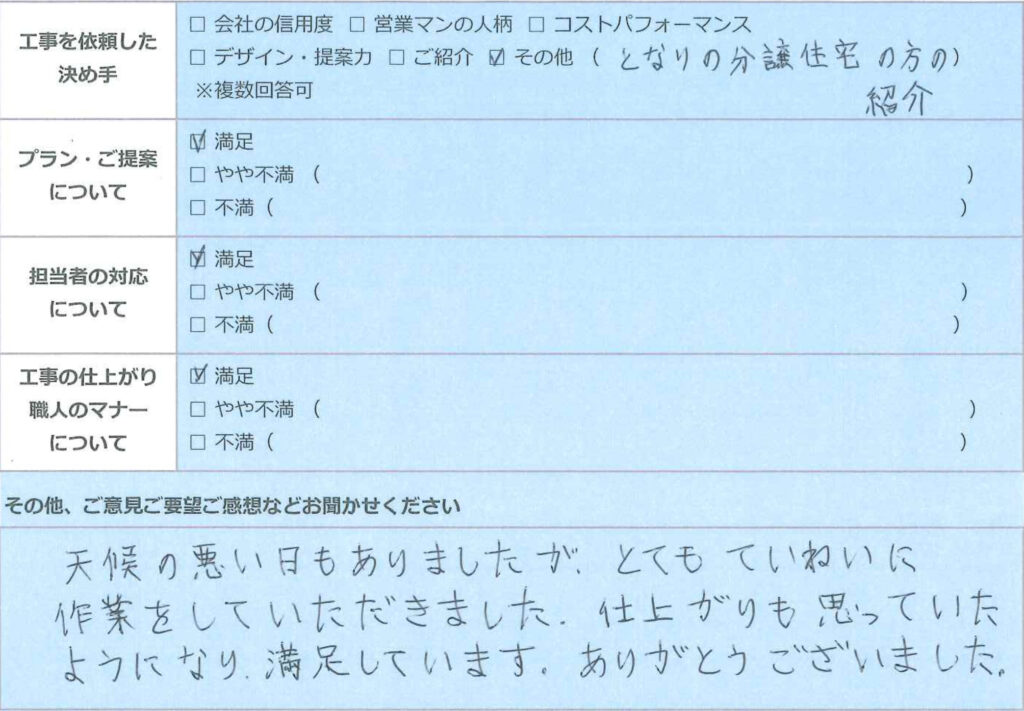 工事を依頼した
決め手
□ 会社の信用度 □ 営業マンの人柄 □ コストパフォーマンス
□ デザイン・提案力 □ ご紹介 ☑ その他 ( となりの分譲住宅の方の)
紹介
※複数回答可
プラン・ご提案
について
☑ 満足
□ やや不満 ( )
□ 不満 ( )
担当者の対応
について
☑ 満足
□ やや不満 ( )
□ 不満 ( )
工事の仕上がり
職人のマナー
について
☑ 満足
□ やや不満 ( )
□ 不満 ( )
その他、ご意見ご要望ご感想などお聞かせください
天候の悪い日もありましたが、とてもていねいに
作業をしていただきました。仕上がりも思っていた
ようになり、満足しています。ありがとうございました。